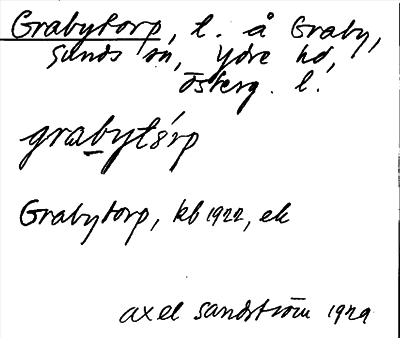 Grabytorp, l. å Graby,
Sunds sn, Ydre hd,
Österg. l.
grabytórp
Grabytorp, kb 1922, ek
axel sandström 1929